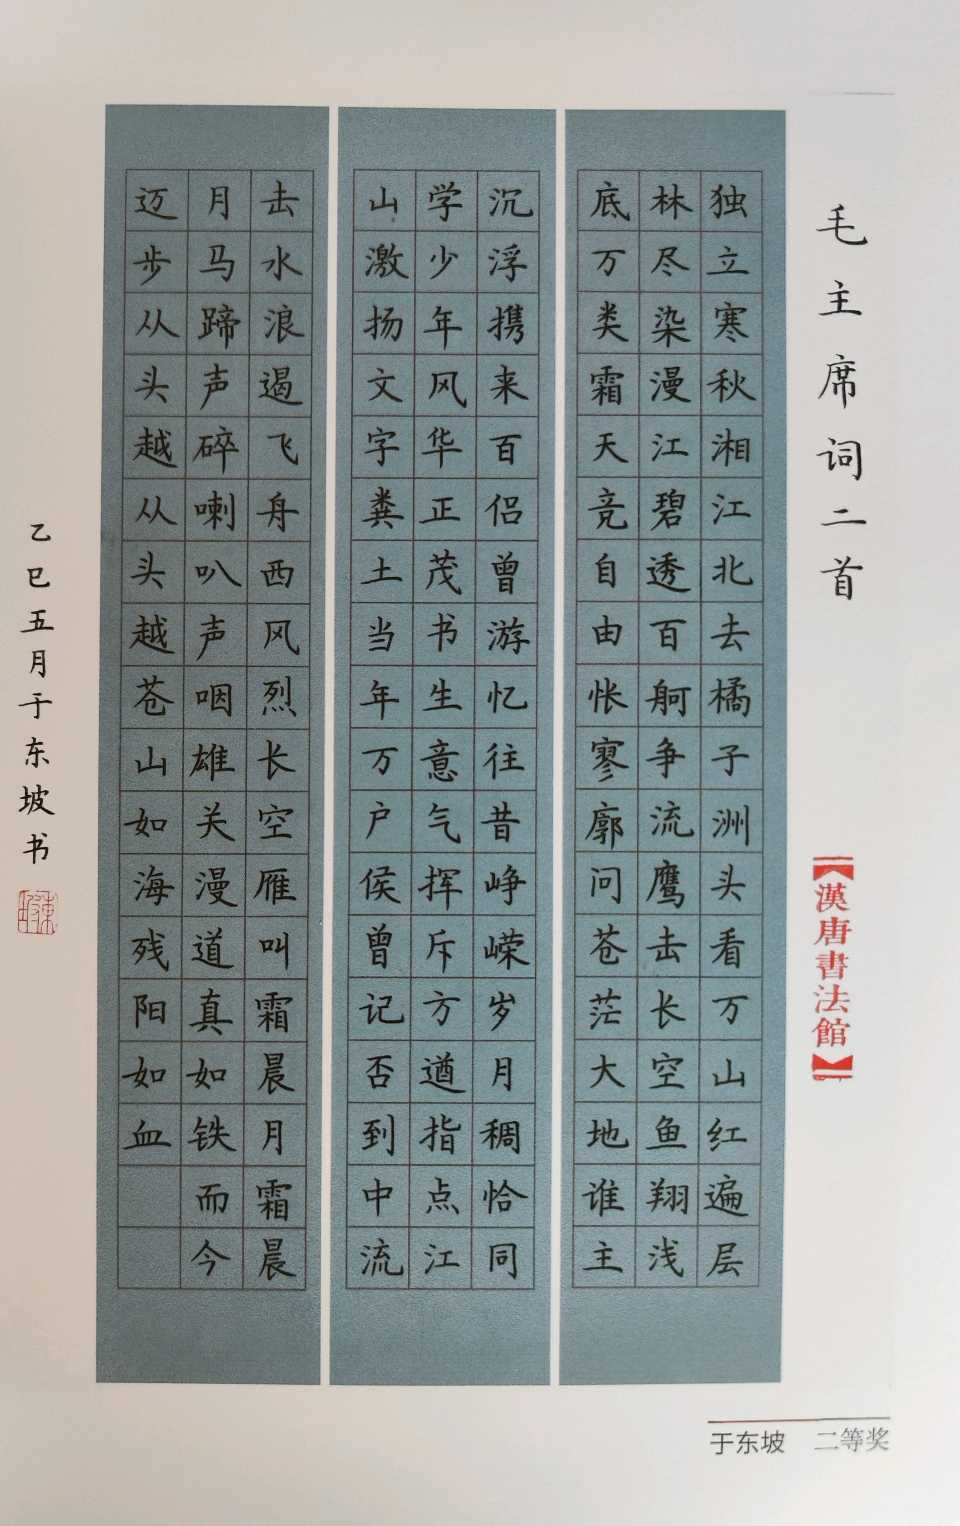 毛主席词二首
【漢唐書法館】
独立寒秋湘江北去橘子洲头看万山红遍层
林尽染漫江碧透百舸争流鹰击长空鱼翔浅
底万类霜天竞自由怅寥廓问苍茫大地谁主
沉浮携来百侣曾游忆往昔峥嵘岁月稠恰同
学少年风华正茂书生意气挥斥方遒指点江
山激扬文字粪土当年万户侯曾记否到中流
击水浪遏飞舟西风烈长空雁叫霜晨月霜晨
月马蹄声碎喇叭声咽雄关漫道真如铁而今
迈步从头越从头越苍山如海残阳如血
乙巳五月于东坡书
于东坡 二等奖